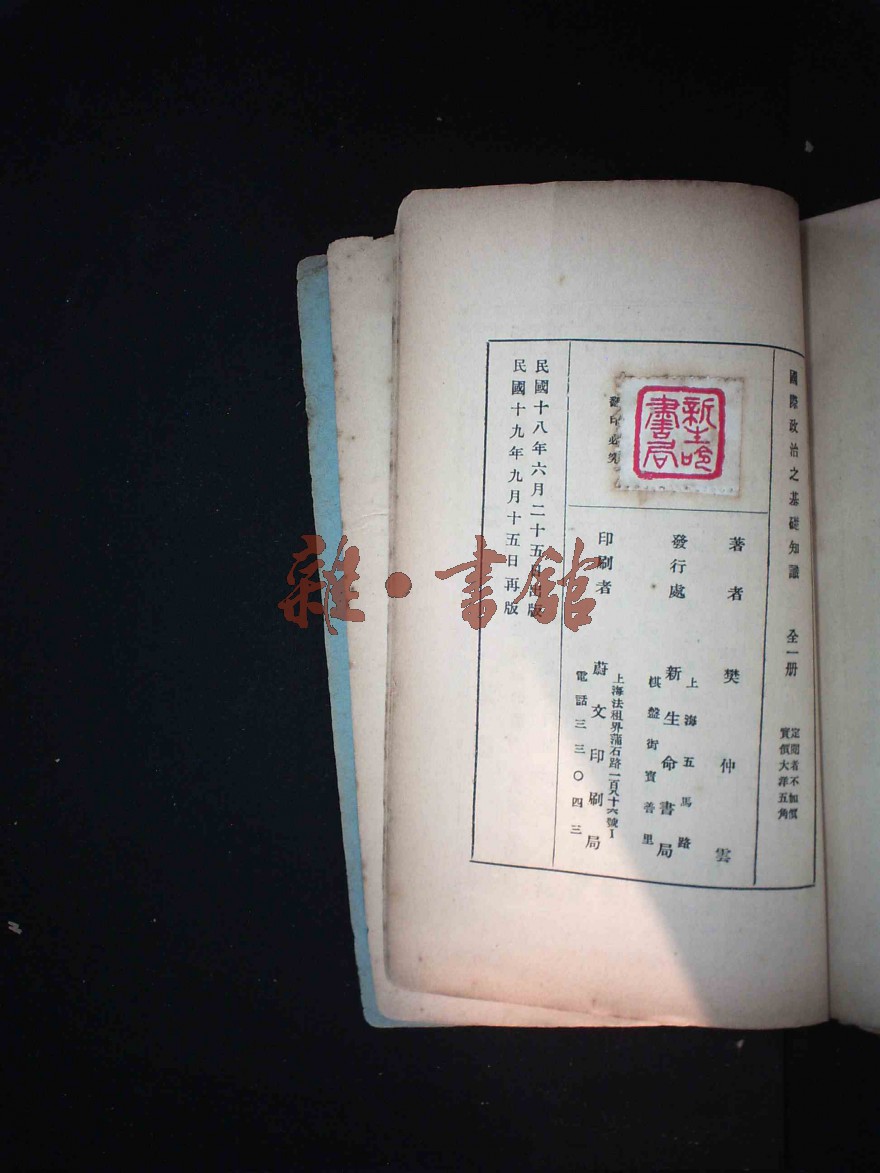 國際政治之基礎知識 全一册
定閱者不加價
實價大洋五角
新生命
書局
翻印必究
著者 樊仲雲
發行處 新生命書局
上海五馬路
棋盤街寶善里
印刷者 蔚文印刷局
上海法租界蒲石路一百八十六號I
電話三三〇四三
民國十八年六月二十五日出版
民國十九年九月十五日再版
雜·書館